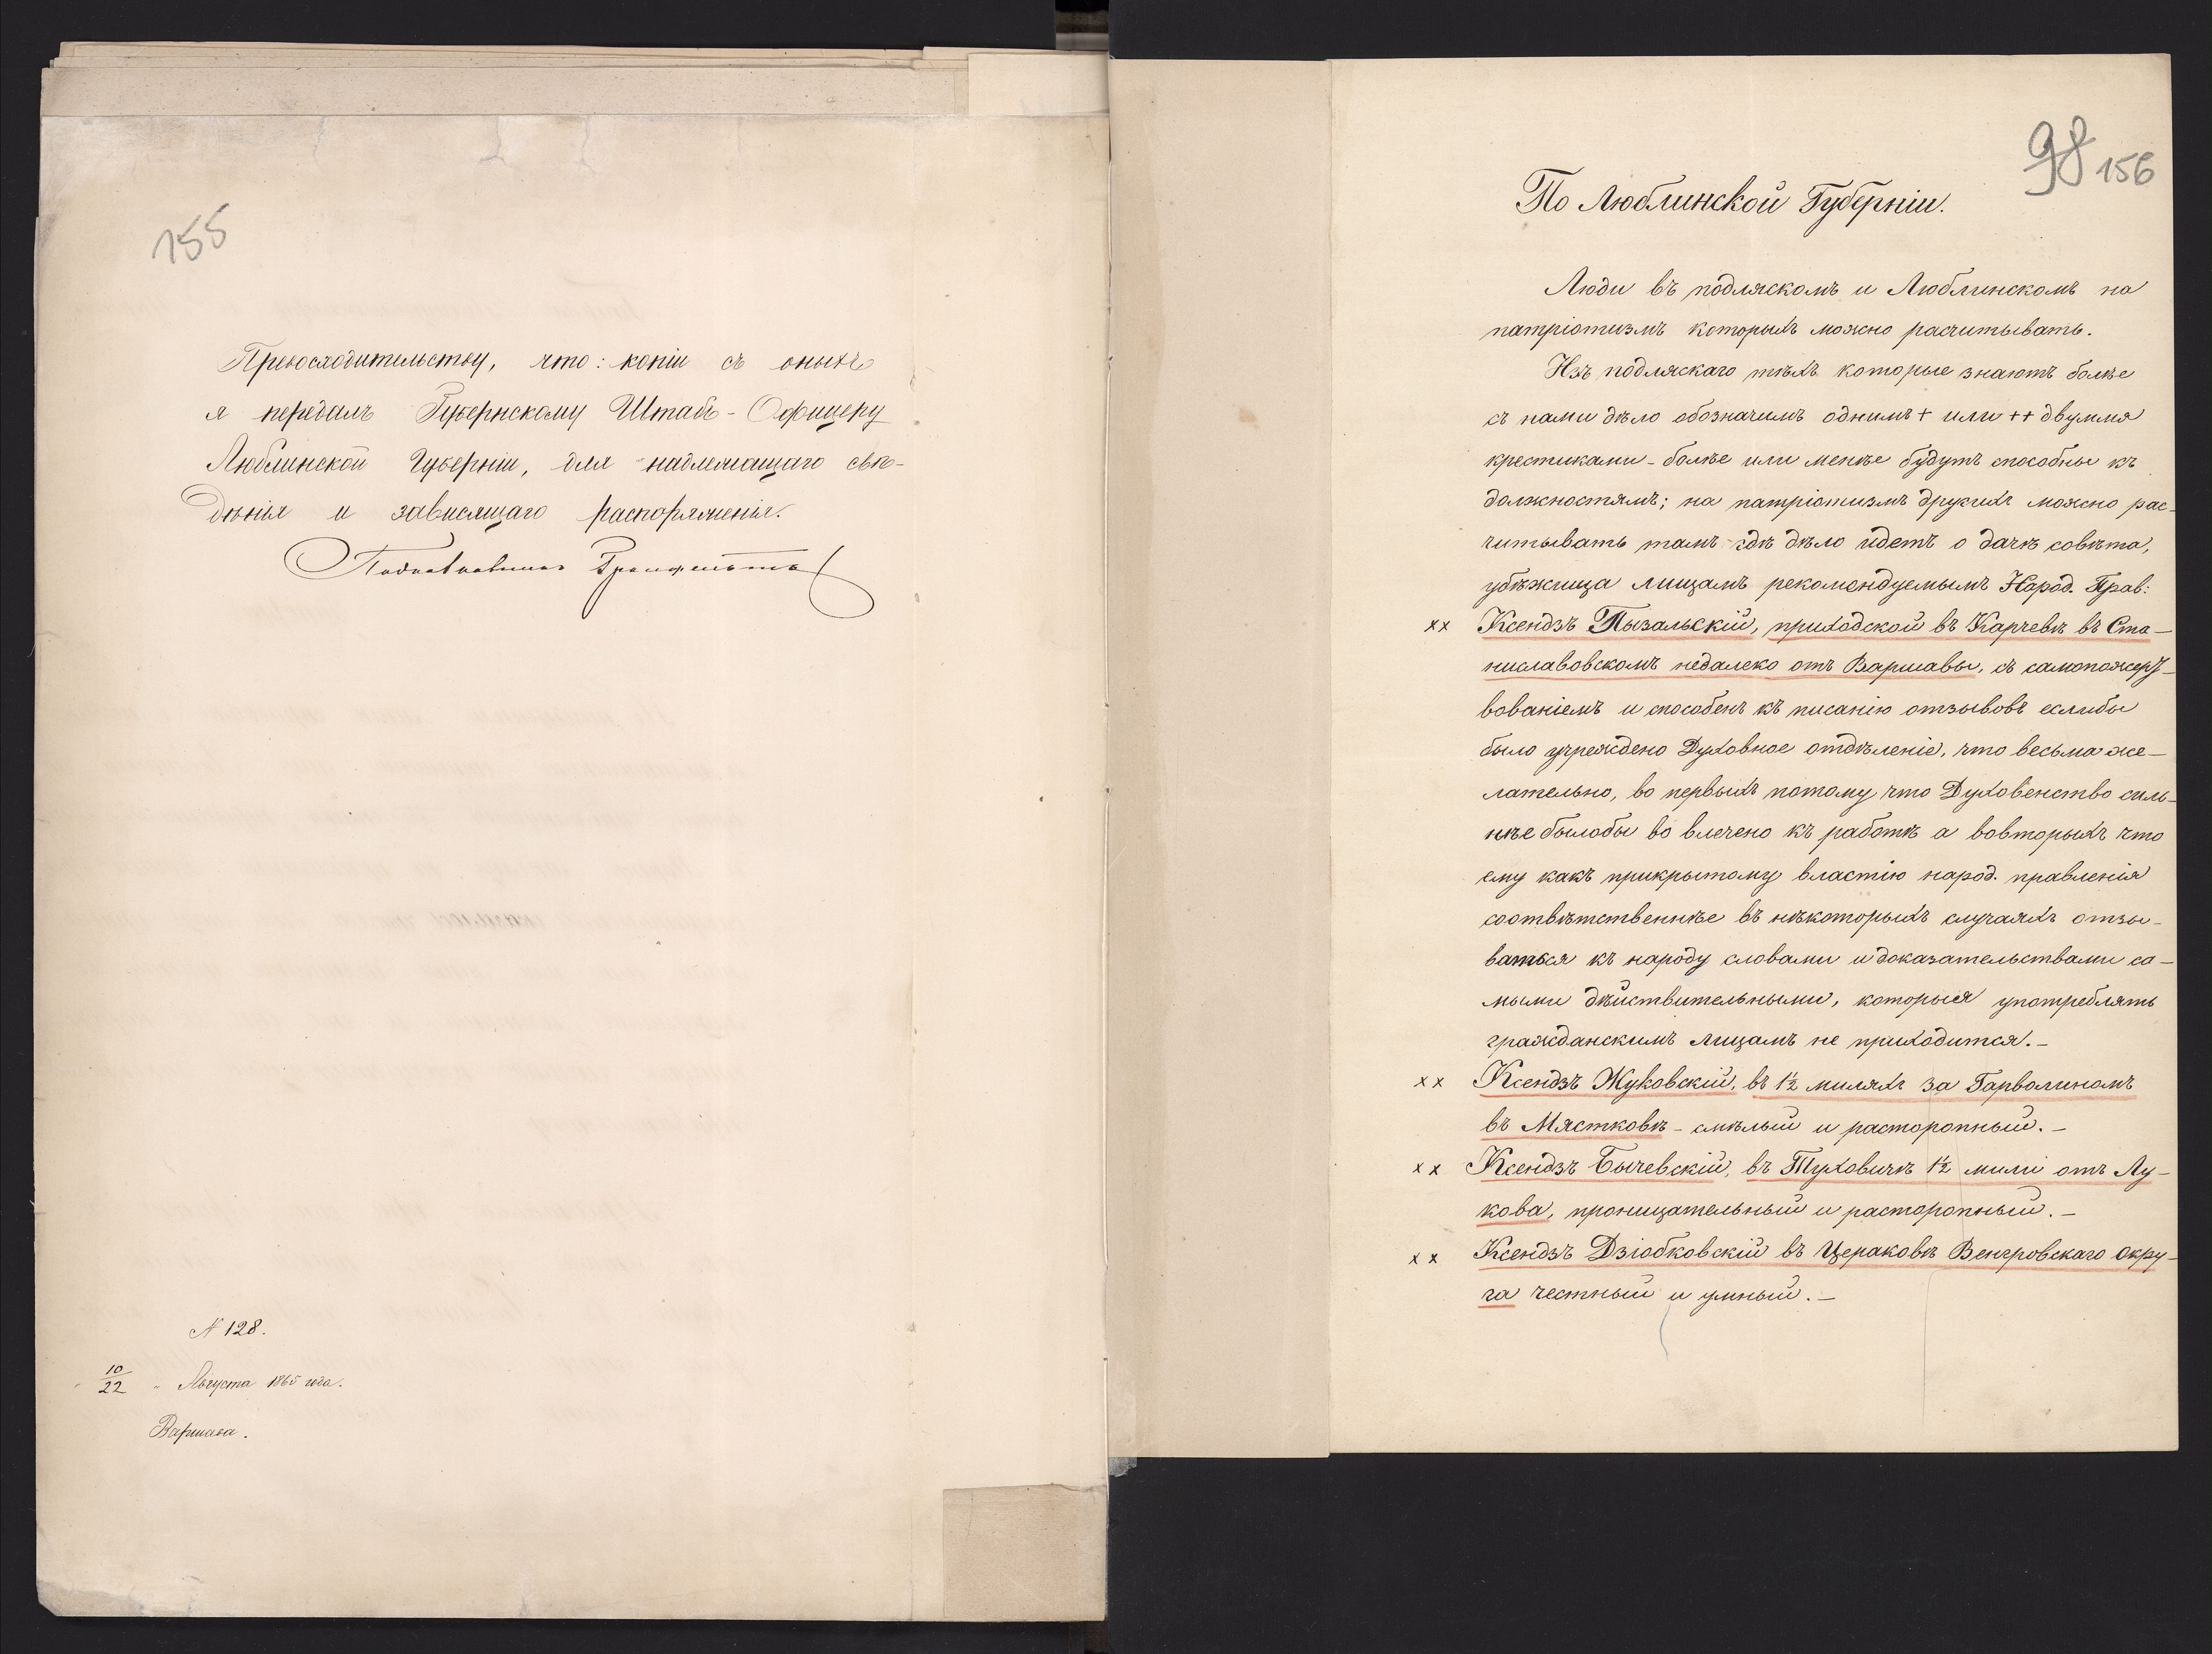 155
Превосходительству, что: копіи съ оныхъ
я передалъ Губернскому Штабъ-Офицеру
Люблинской Губерніи, для надлежащаго свѣ-
дѣнія и зависящаго распоряженія.
Подполковникъ
N 128.
10/22 " Августа 1865 года.
Варшава.
98 156
По Люблинской Губерніи.
Люди въ подляскомъ и Люблинскомъ на
патріотизмъ которыхъ можно расчитывать.
Изъ подляскаго тѣхъ которые знаютъ болѣе
съ нами дѣло обозначимъ однимъ + или ++ двуммя
крестиками - болѣе или менѣе будутъ способны къ
должностямъ; на патріотизмъ другихъ можно рас-
читывать тамъ гдѣ дѣло идетъ о дачѣ совѣта,
убѣжища лицамъ рекомендуемымъ Народ. Прав:
хх Ксендзъ Пызальскій, приходской въ Карчевѣ въ Ста-
ниславовскомъ недалеко отъ Варшавы, съ самопожерт-
вованіемъ и способенъ къ писанію отзывовъ еслибы
было учреждено Духовное отдѣленіе, что весьма же-
лательно, во первыхъ потому что Духовенство силь-
нѣе былобы во влечено къ работѣ а вовторыхъ что
ему какъ прикрытому властію народ. правленія
соотвѣтственнѣе въ нѣкоторыхъ случаяхъ отзы-
ваться къ народу словами и доказательствами са-
мыми дѣйствительными, которыя употреблять
гражданскимъ лицамъ не приходится. -
хх Ксендзъ Жуковскій, въ 1½ миляхъ за Гарволиномъ
въ Мястковѣ - смѣлый и расторопный. -
хх Ксендзъ Бычевскій, въ Туховичѣ 1½ мили отъ Лу-
кова, проницательный и расторопный. -
хх Ксендзъ Дзіобковскій въ Цераковѣ Венгровскаго окру-
га честный и умный. -